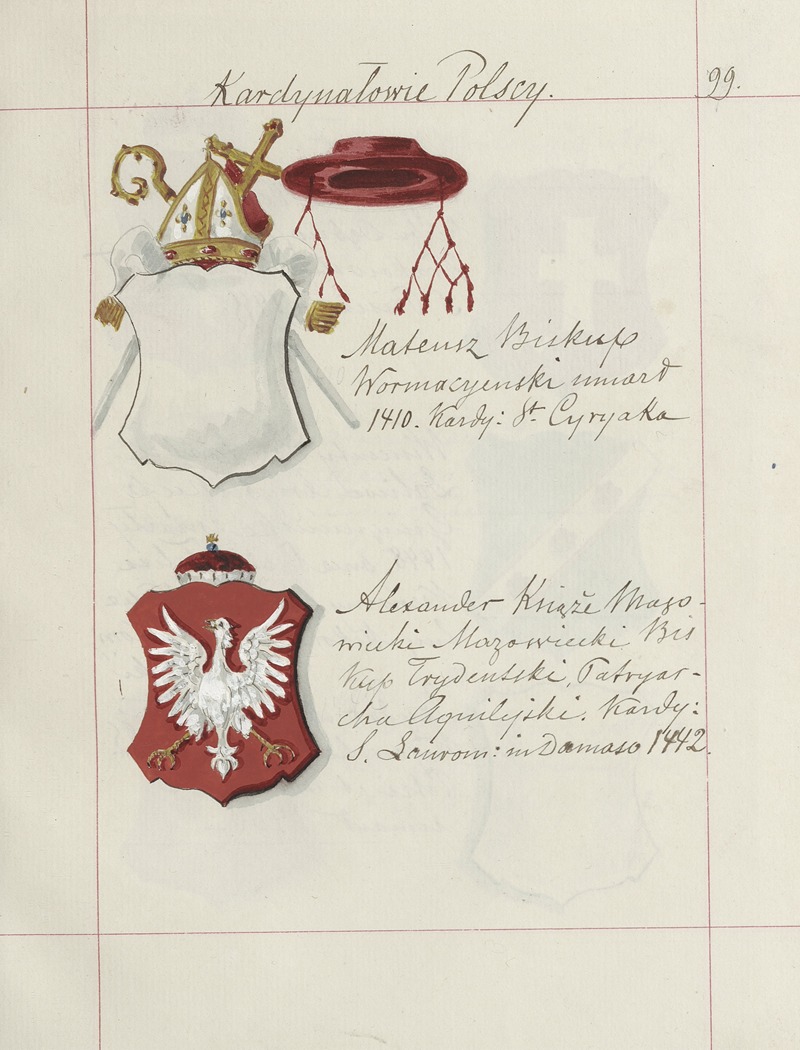 Kardynałowie Polscy.
99.
Mateusz Biskup
Wormacyenski umarł
1410. Kardy: St. Cyryaka
Alexander Książe Mazo-
wiecki Mazowiecki, Bis
kup Trydentski, Patryar-
cha Aquilejski. Kardy:
S. Laurom: in Damaso 1442.